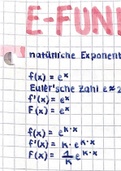 E-FUN
natürliche Exponent
f(x) = eˣ
Euler'sche Zahl e ≈ 2
f'(x) = eˣ
F(x) = eˣ
f(x) = eᵏ·ˣ
f'(x) = k · eᵏ·ˣ
F(x) = 1/k eᵏ·ˣ